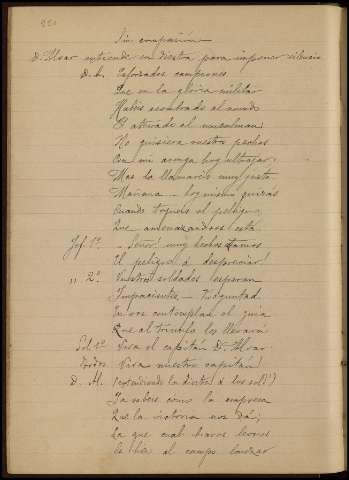 220
Sin compasión
D. Alvar extiende su diestra para imponer silencio
D. A. Esforzados campeones
Que en la gloria militar
Habéis asombrado al mundo
Y al musulman
No quisiera vuestros pechos
Con mi arenga hoy ultrajar;
Mas la llamareis muy justa
Mañana — hoy mismo quizás
Cuando toqueis el peligro,
Que amenazandoos está.
Jef. 1º. — Señor! muy hechos estamos
El peligro á despreciar!
" 2º. Vuestros soldados esperan
Impacientes. —
En vos contemplan el guia
Que al triunfo los llevará
Sol. 1º Viva el capitán D. Alvar.
Todos. Viva nuestro capitán!
D. Al. (extendiendo la diestra á los sold.s)
Ya sabeis como la empresa
Que la victoria nos dá;
La que cual bravos leones
al campo lanzar